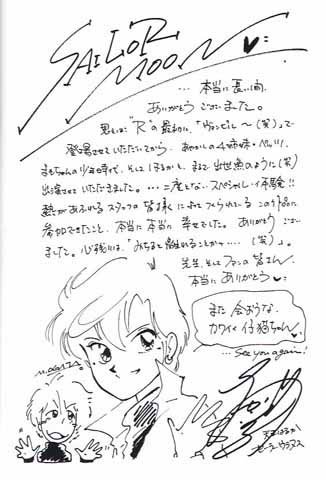 SAILOR
MOON
… 本当に長い間、
ありがとう ございました。
思えば "R" の最初に、「ヴァンピル〜(笑)」で
登場させていただいてから、あやかしの4姉妹・ベルチェ、
まもちゃんの少年時代、そして はるかと、まるで出世魚のように(笑)
出演させていただきました。… 二度とない スペシャルな体験!!
熱があふれる スタッフの皆様によって つくられている この作品に
参加できたこと、本当に 本当に 幸せでした。ありがとう ござい
ました。心残りは、「みちると離れることかな…(笑)」。
先生、そして ファンの皆さん
本当に ありがとう
また 会おうな、
カワイイ 仔猫ちゃん
… See you again!
M.OGATA
天王はるか
セーラーウラヌス